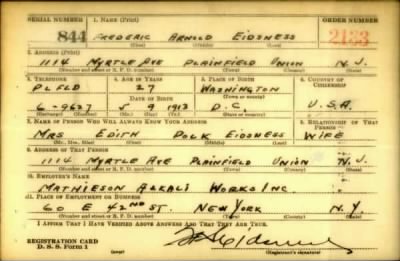 SERIAL NUMBER 1. NAME (Print) ORDER NUMBER
844 FREDERIC ARNOLD EIDSNESS 2133
(First) (Middle) (Last)
2. ADDRESS (Print)
1114 MYRTLE AVE PLAINFIELD UNION N.J.
(Number and street or R. F. D. number) (Town) (County) (State)
3. TELEPHONE 4. AGE IN YEARS 5. PLACE OF BIRTH 6. COUNTRY OF CITIZENSHIP
PLFLD 27 WASHINGTON
DATE OF BIRTH (Town or county)
6-9627 5 9 1913 D.C. U.S.A.
(Exchange) (Number) (Mo.) (Day) (Yr.) (State or country)
7. NAME OF PERSON WHO WILL ALWAYS KNOW YOUR ADDRESS 8. RELATIONSHIP OF THAT PERSON
MRS EDITH POLK EIDSNESS WIFE
(Mr., Mrs., Miss) (First) (Middle) (Last)
9. ADDRESS OF THAT PERSON
1114 MYRTLE AVE PLAINFIELD UNION N.J.
(Number and street or R. F. D. number) (Town) (County) (State)
10. EMPLOYER'S NAME
MATHIESON ALKALI WORKS INC.
11. PLACE OF EMPLOYMENT OR BUSINESS
60 E 42ND ST. NEW YORK N.Y
(Number and street or R. F. D. number) (Town) (County) (State)
I AFFIRM THAT I HAVE VERIFIED ABOVE ANSWERS AND THAT THEY ARE TRUE.
REGISTRATION CARD
D. S. S. Form 1 (Registrant's signature)